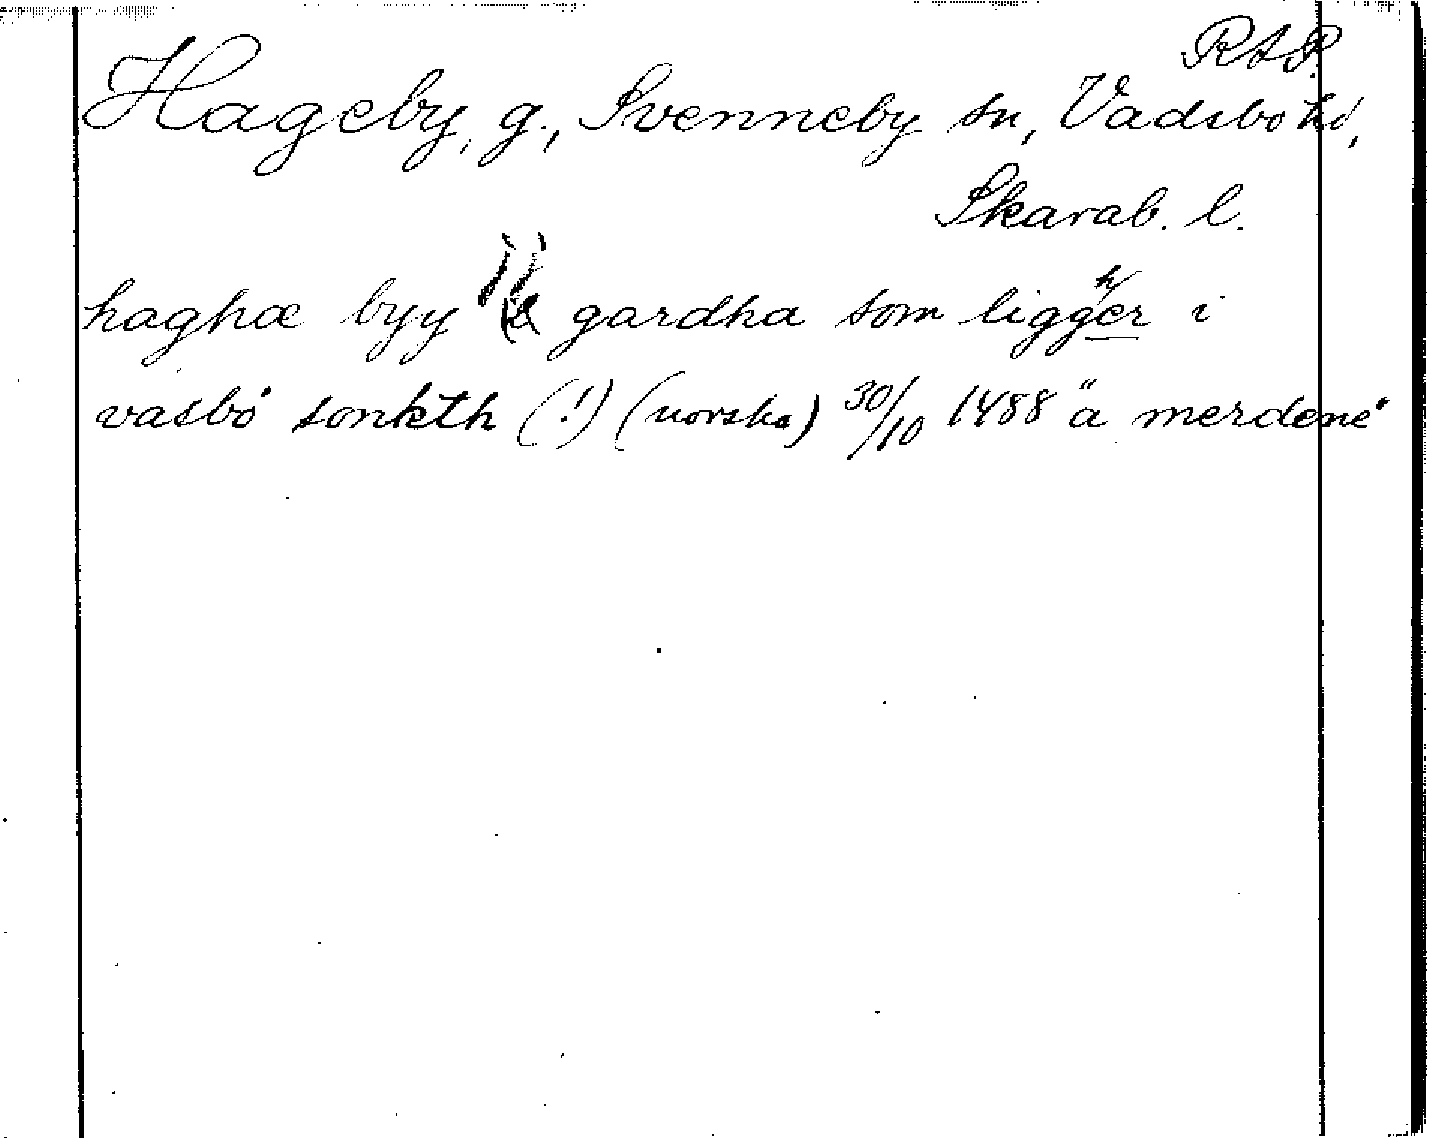 RAP.
Hageby, g., Svenneby sn, Vadsbo hd,
Skarab. l.
haghæ byy ij gardha som liggher i
vasbo sonkth (!) (norska) 30/10 1488 "a merdene"